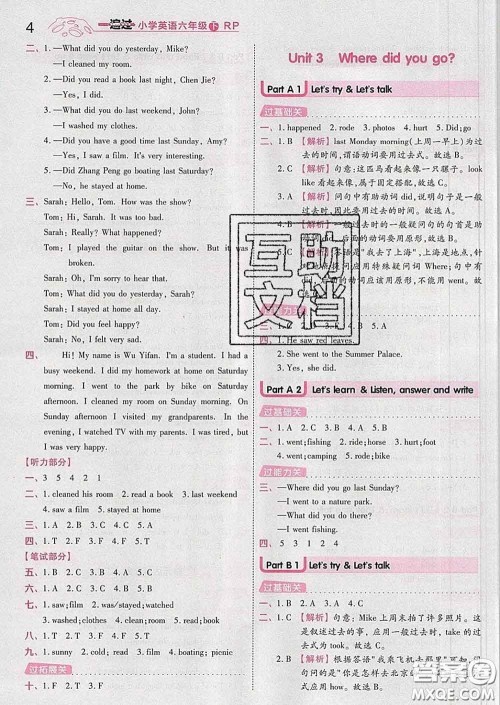 4 一遍过 小学英语六年级 下 RP
二、1. —What did you do yesterday, Mike?
—I cleaned my room.
2. —Did you read a book last night, Chen Jie?
—Yes, I did.
3. —What did you do last weekend, John?
—I washed my clothes.
4. —Did you have a good time last Sunday, Amy?
—Yes, I saw a film. It's very interesting.
5. —Did Zhang Peng go boating last Saturday?
—No, he stayed at home.
三、Sarah: Hello, Tom. How was the show?
Tom: Hi, Sarah. It was too bad.
Sarah: Really? What happened?
Tom: I played the guitar on the show. But it was
broken.
Sarah: Oh, I'm sorry to hear that.
Tom: What did you do yesterday, Sarah?
Sarah: I stayed at home and watched TV.
Tom: Did you feel happy?
Sarah: No, I felt very sad.
四、Hi! My name is Wu Yifan. I'm a student. I had a
busy weekend. I did my homework at home on Saturday
morning. I went to the park by bike on Saturday
afternoon. I cleaned my room on Sunday morning. On
Sunday afternoon I visited my grandparents. In the
evening, I watched TV with my parents. I was tired but
I was very happy.
【听力部分】
一、3 5 4 2 1
二、1. cleaned his room 2. read a book 3. last weekend
4. saw a film 5. stayed at home
三、1. A 2. B 3. C 4. B 5. A
四、1. T 2. F 3. F 4. T 5. F
【笔试部分】
五、1. B 2. C 3. C 4. B 5. A
六、1. A 2. B 3. C 4. B 5. C
七、1. saw; film 2. read; book
3. washed; clothes 4. cleaned; room
八、1. B 2. A 3. A 4. C 5. B
九、1. sunny 2. cold 3. window 4. read 5. busy
过拓展关
十、1. F 2. F 3. T 4. F 5. T
Unit 3 Where did you go?
Part A 1 Let's try & Let's talk
过基础关
一、1. happened 2. rode 3. photos 4. hurt 5. Did; go
二、1. B 【解析】last Monday morning(上周一早上)为过
去的时间,谓语动词要用过去式。故选 B。
2. C 【解析】句意:这匹马看起来像一头骡子。look
like 看起来像,属于固定搭配,故选 C。
3. A 【解析】问句中有助动词 did,说明句子是一般
过去时,一般过去时的一般疑问句的句首是助动
词 did,后面的动词要用原形。故选 A。
Where;句中有
did,句中的动词应该用原形,不能用 went。故
选 B。
三、
四、1. He saw red leaves.
2. She went to the Summer Palace.
3. Yes, she did.
Part A 2 Let's learn & Listen, answer and write
过基础关
一、1. B 2. C 3. B 4. A 5. C
二、1. went; fishing 2. rode; horse
3. went; camping 4. hurt; foot
过能力关
三、—Where did you go last Sunday?
—I went to a nature park.
—What did you do there?
—I went fishing.
四、5 3 1 2 4
Part B 1 Let's try & Let's talk
过基础关
一、1. B 2. A 3. C 4. B 5. A
二、1. A 【解析】句意:Mike 上周末拍了许多照片。这
是叙述过去的事,应用一般过去时,take 的过去
式是 took。故选 A。
2. B 【解析】根据答语"我乘飞机去那里"可知,问
句问的是"你怎么去北京
互助文档
答案圈
MXQE.COM